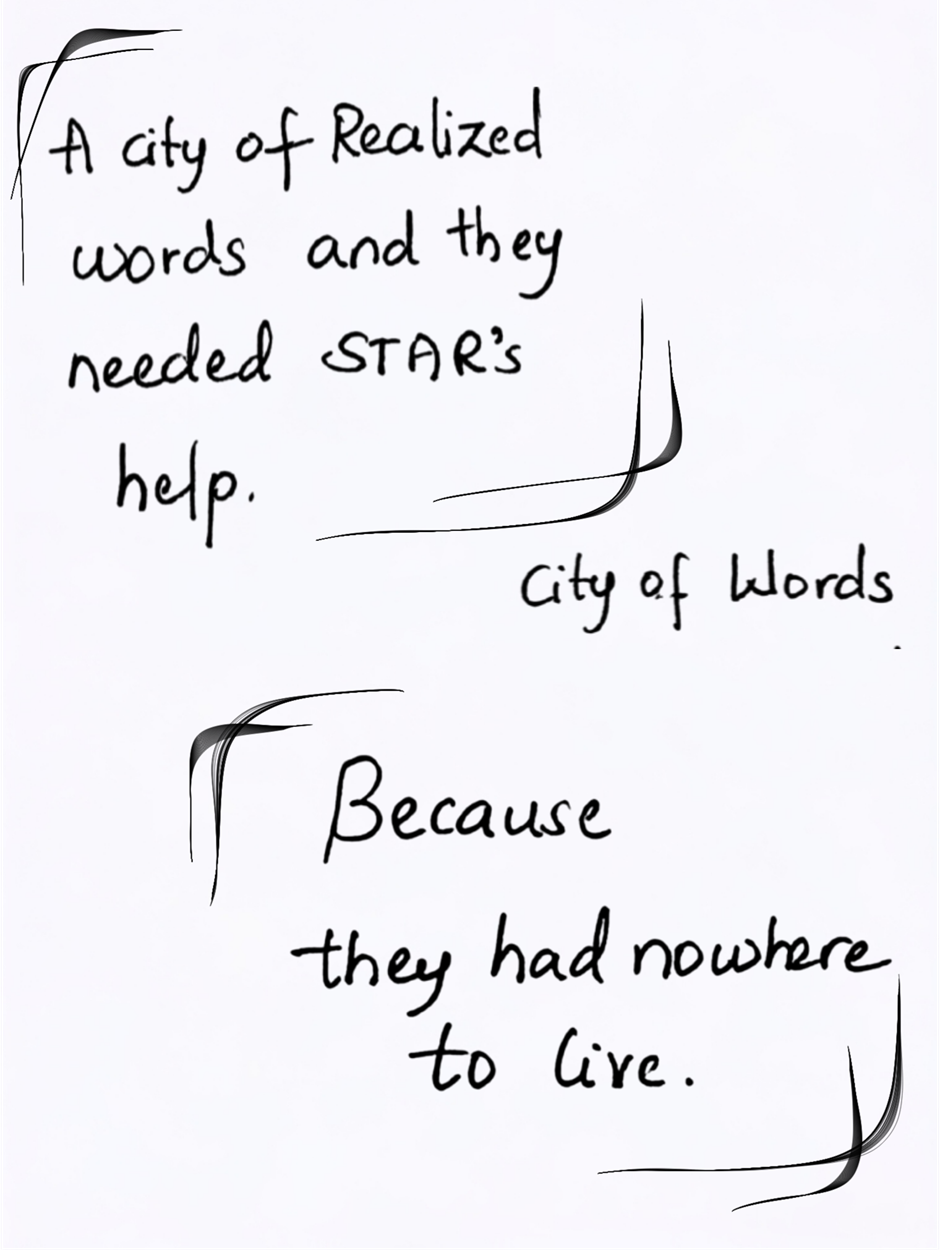 A city of Realized
words and they
needed STAR's
help.
City of Words
.
Because
they had nowhere
to live.